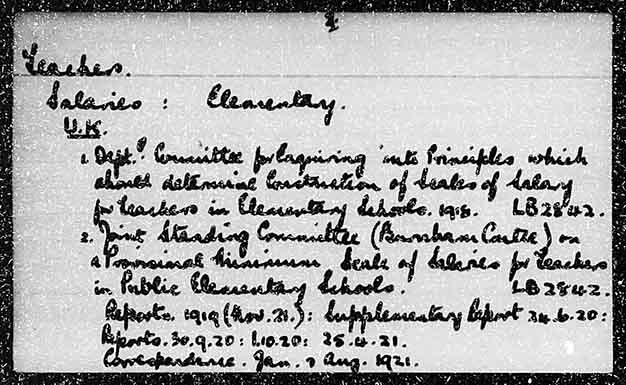 Teachers.
Salaries : Elementary.
U.K.
1. Dept.l Committee for Enquiring into Principles which
should determine Construction of Scales of Salary
for Teachers in Elementary Schools. 1918. LB 2842.
2. Joint Standing Committee (Burnham Cttee) on
a Provisional Minimum Scale of Salaries for Teachers
in Public Elementary Schools. LB 2842.
Reports. 1919 (Nov. 21.): Supplementary Report 24.6.20:
Reports. 30.9.20: 1.10.20: 25.4.21.
Correspondence. Jan. Aug. 1921.